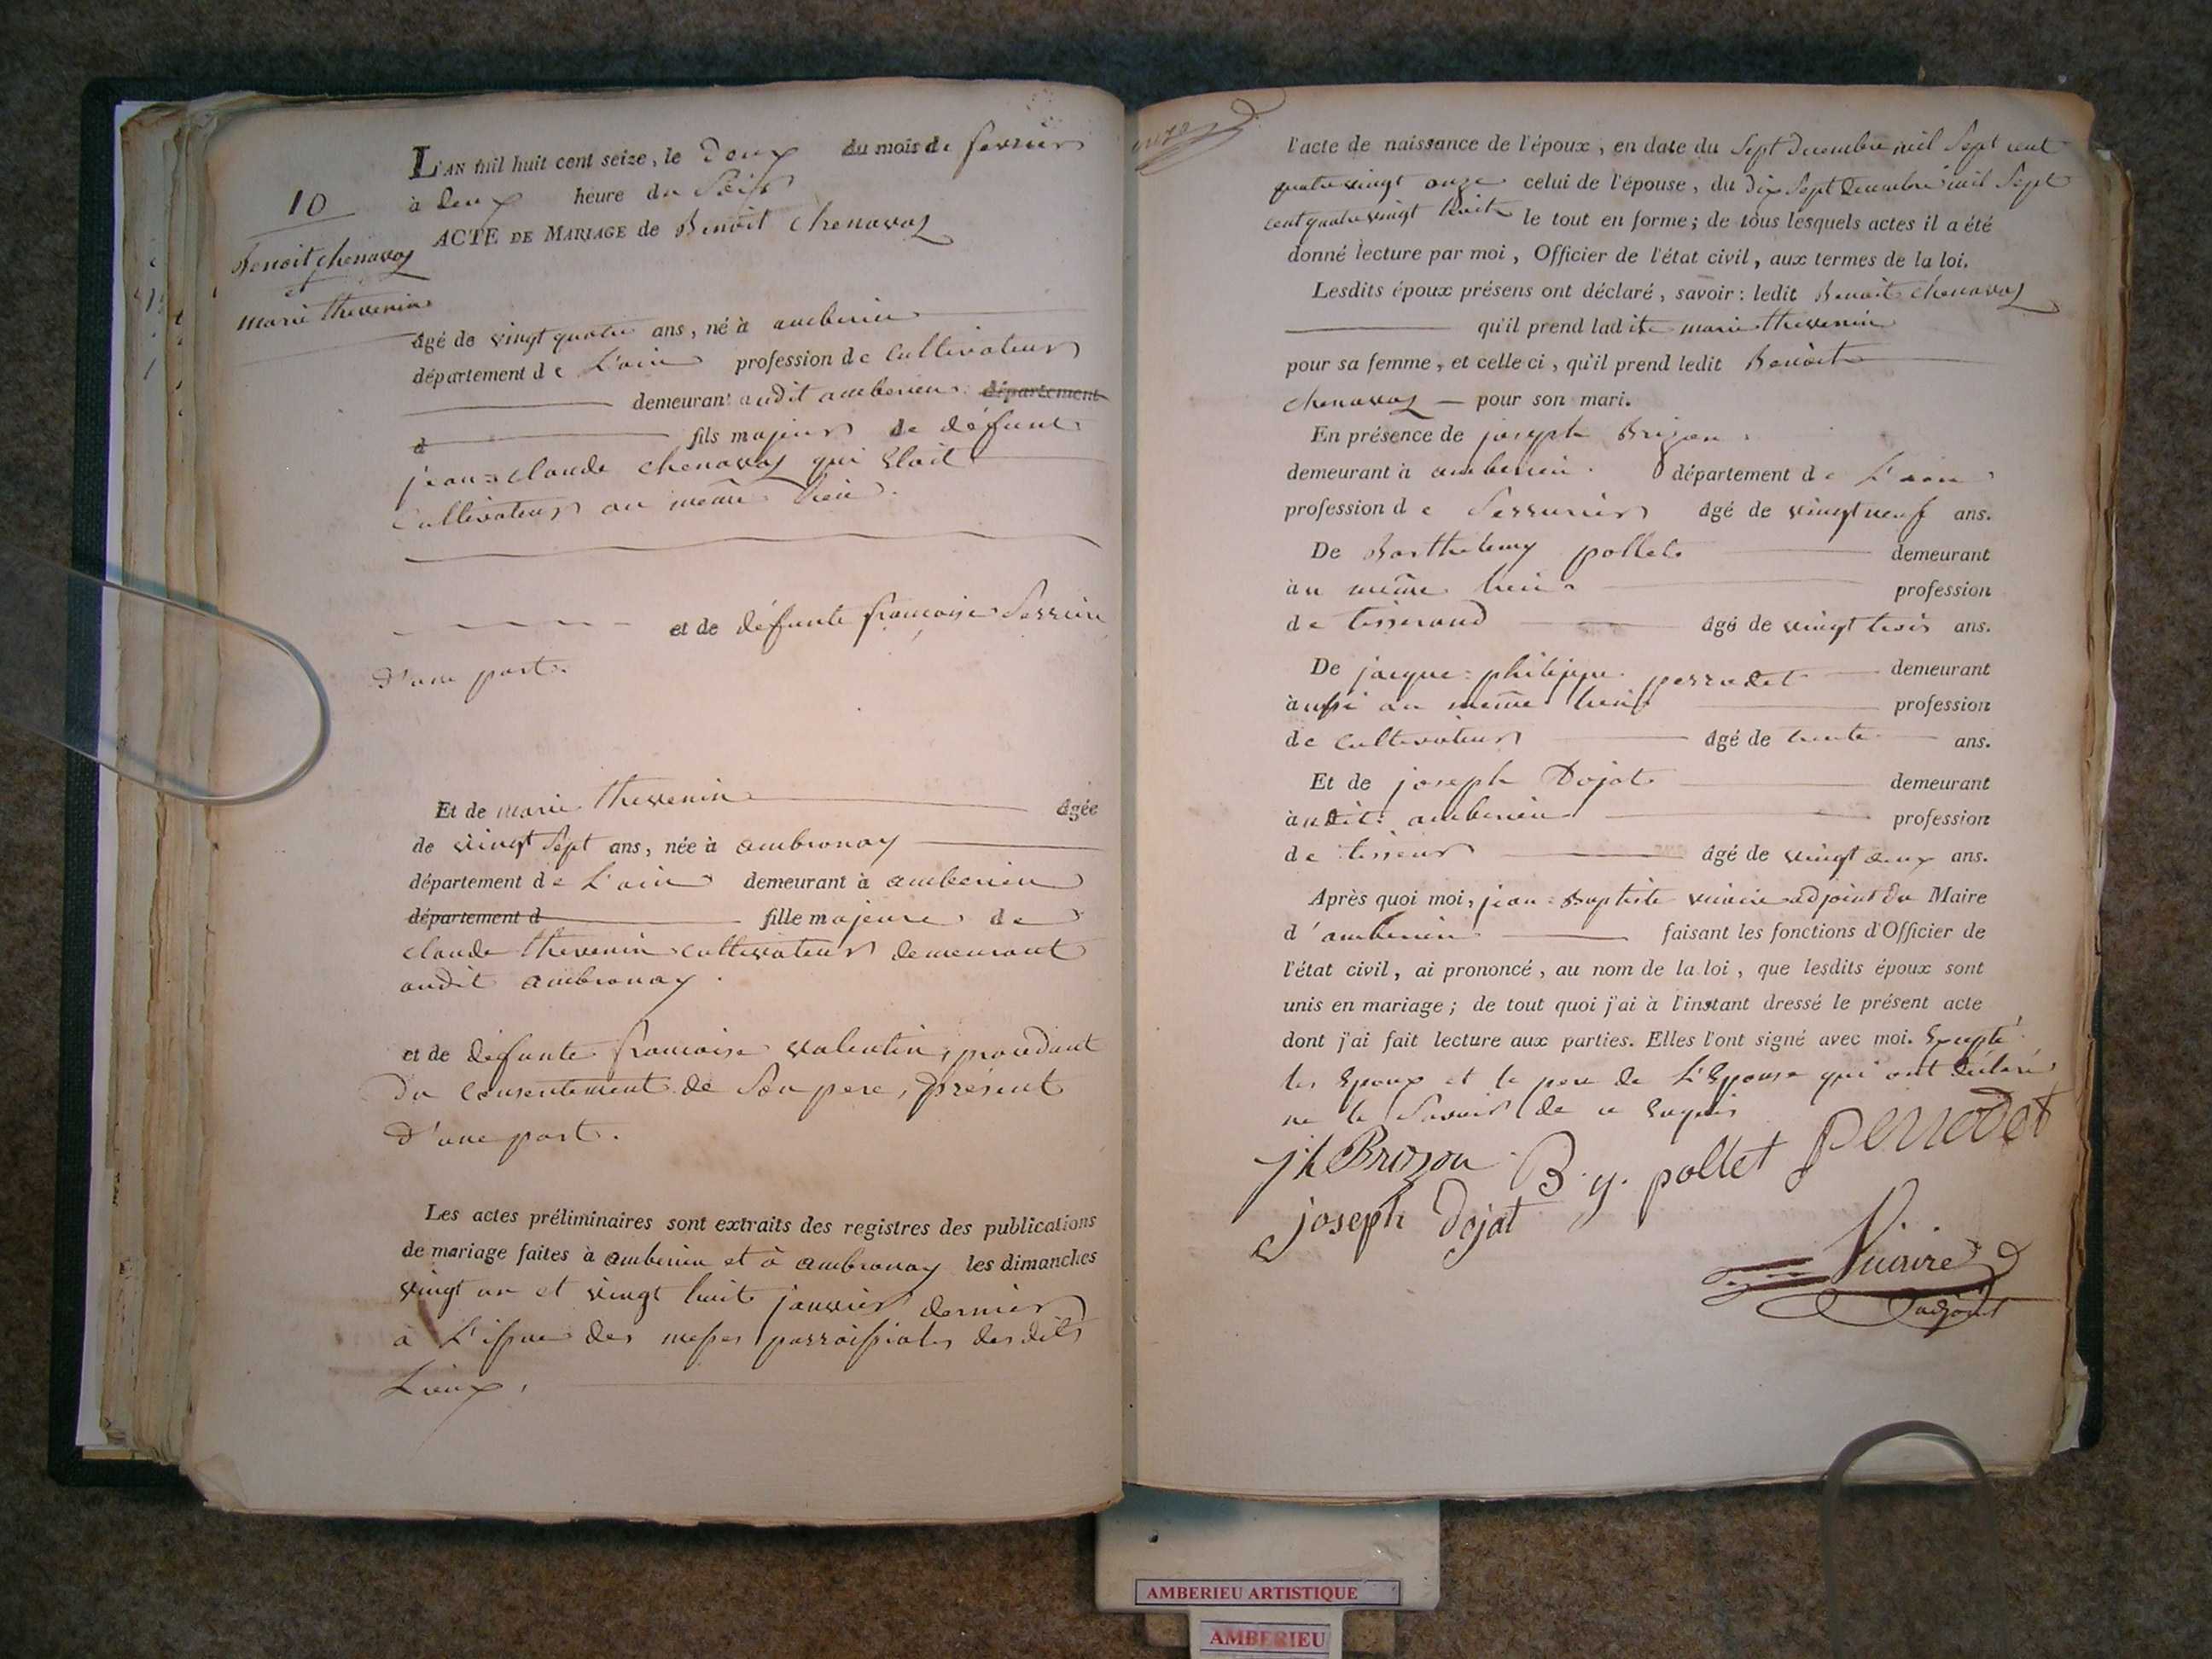 10
Benoit chenavas
et
marie thevenin
L'AN mil huit cent seize, le Deux du mois de fevrier
à deux heure du Soir
ACTE DE MARIAGE de Benoit Chenavas
âgé de vingt quatre ans, né à amberieu
département de L'ain profession de Cultivateur
demeurant audit amberieu département
d fils majeur de défunt
jean=claude chenavas qui Etoit
Cultivateur au même lieu.
et de défunte francoise Serriere
d'une part.
Et de marie thevenin âgée
de vingt Sept ans, née à ambronay
département de L'ain demeurant à amberieu
département d fille majeure de
claude thevenin cultivateur demeurant
audit ambronay.
et de défunte francoise valentin, procédant
du consentement de Son pere, présent
d'une part.
Les actes préliminaires sont extraits des registres des publications
de mariage faites à amberieu et à ambronay les dimanches
vingt un et vingt huit janvier dernier
à L'issue des messes parroissiales desdits
Lieux,
l'acte de naissance de l'époux, en date du Sept Decembre mil Sept cent
quatre vingt onze celui de l'épouse, du dix Sept Decembre mil Sept
cent quatre vingt huit le tout en forme; de tous lesquels actes il a été
donné lecture par moi, Officier de l'état civil, aux termes de la loi.
Lesdits époux présens ont déclaré, savoir: ledit Benoit chenavas
qu'il prend ladite marie thevenin
pour sa femme, et celle ci, qu'il prend ledit Benoit
chenavas — pour son mari.
En présence de joseph Brizon
demeurant à amberieu. département de L'ain
profession de Serrurier âgé de vingt neuf ans.
De Barthelemy pollet demeurant
au même lieu profession
de tisserand âgé de vingt trois ans.
De jacque=philippe perrodet demeurant
aussi au même lieu profession
de cultivateur âgé de trente ans.
Et de joseph Dojat demeurant
audit amberieu profession
de tisseur âgé de vingt deux ans.
Après quoi moi, jean=Baptiste vicaire adjoint du Maire
d'amberieu faisant les fonctions d'Officier de
l'état civil, ai prononcé, au nom de la loi, que lesdits époux sont
unis en mariage; de tout quoi j'ai à l'instant dressé le présent acte
dont j'ai fait lecture aux parties. Elles l'ont signé avec moi. Excepté
les Epoux et le pere de L'Epouse qui ont déclaré
ne le Savoir de ce Enquis
jh Brizon B.y. pollet perrodet
joseph dojat
Vicaire
adjoint
AMBERIEU ARTISTIQUE
AMBERIEU